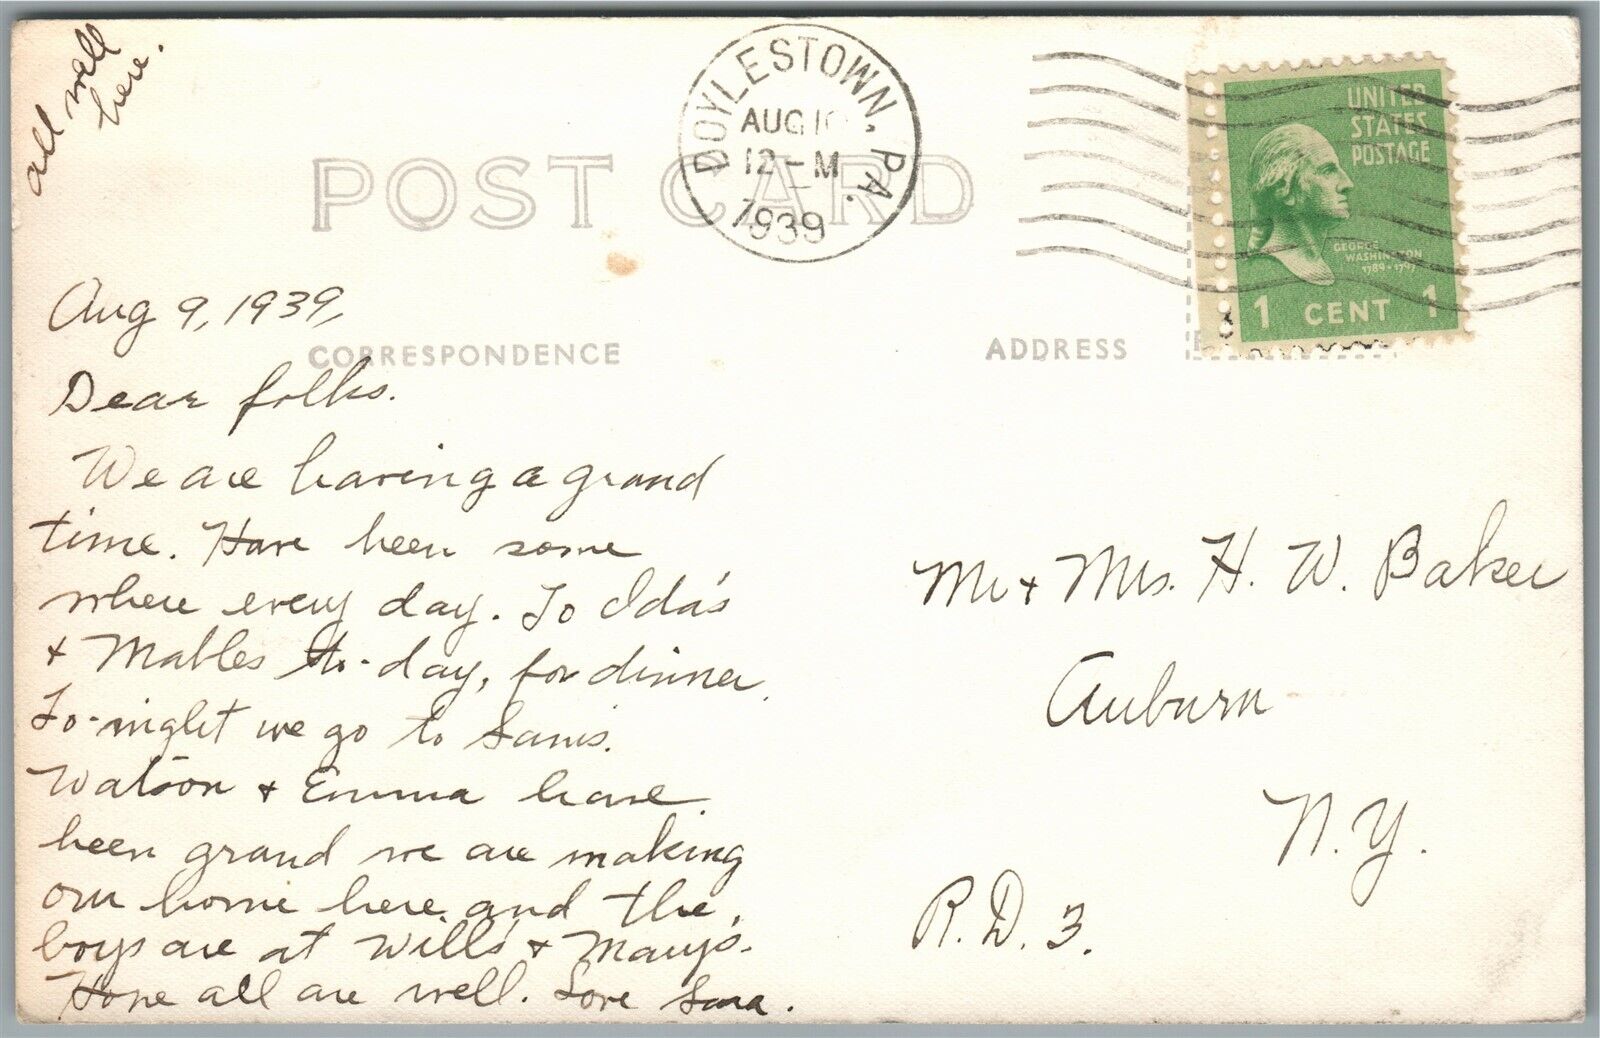 all well
here.
POST CARD
DOYLESTOWN, PA.
AUG 10
12-M
1939
UNITED
STATES
POSTAGE
GEORGE
WASHINGTON
1789-1797
1 CENT 1
Aug 9, 1939,
CORRESPONDENCE
ADDRESS
Dear folks.
We are having a grand
time. Have been some
where every day. To Ida's
+ Mables to-day, for dinner.
To-night we go to Sam's.
Watson + Emma have
been grand we are making
our home here and the
boys are at Will's + Mary's.
Hope all are well. Love Sara.
Mr + Mrs. H. W. Baker
Auburn
N.Y.
R.D. 3.